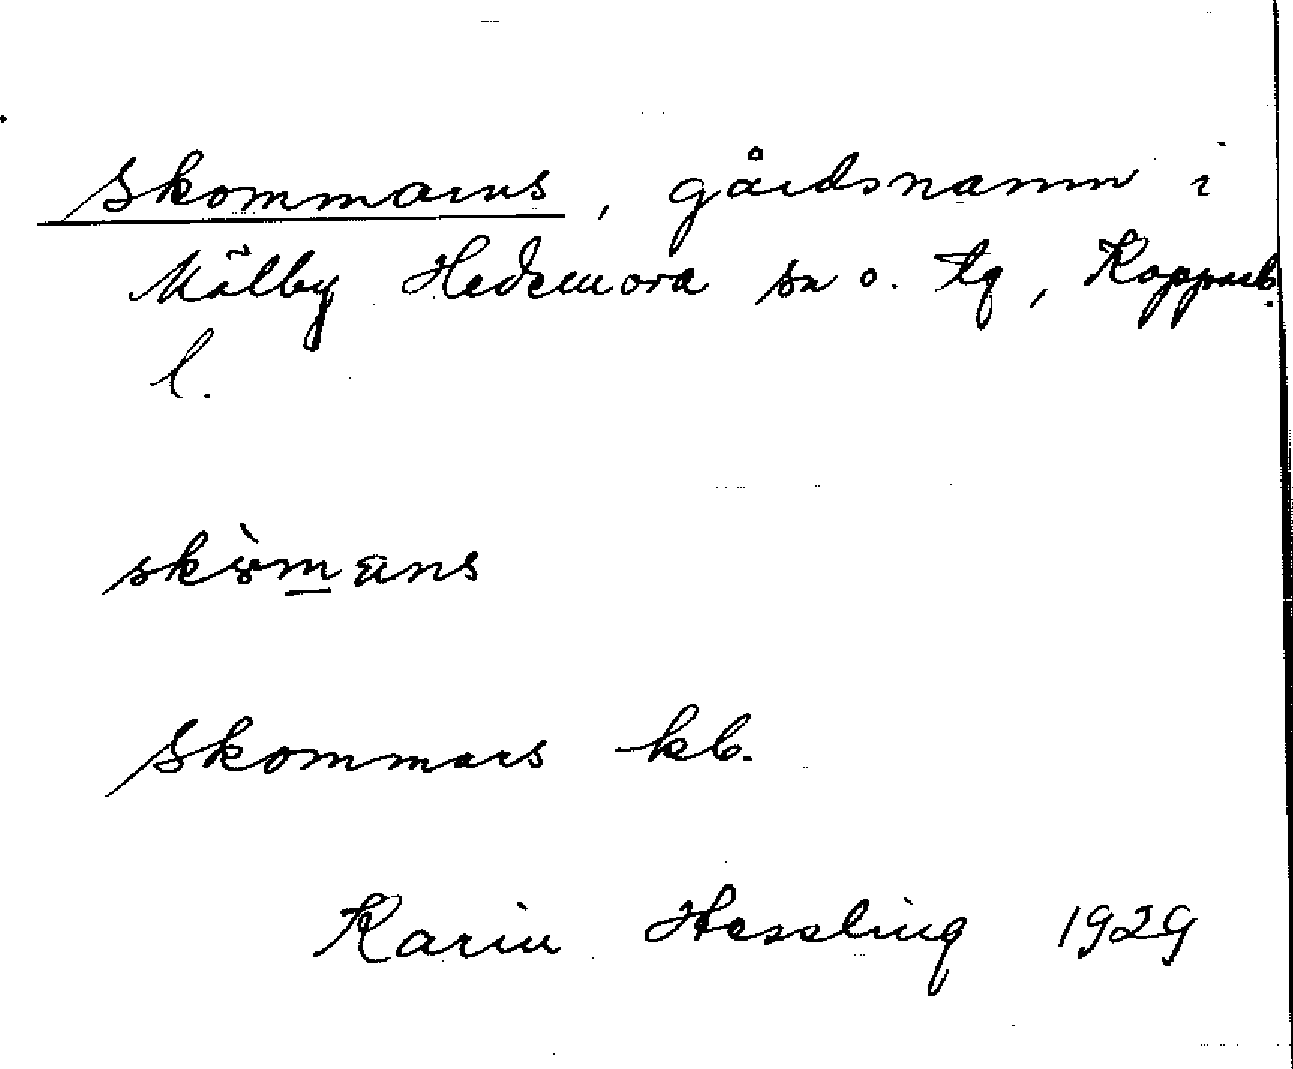 Skommars, gårdsnamn i
Mälby Hedemora sn o. tg, Kopparb.
l.
skòmans
Skommars kb.
Karin Hessling 1929